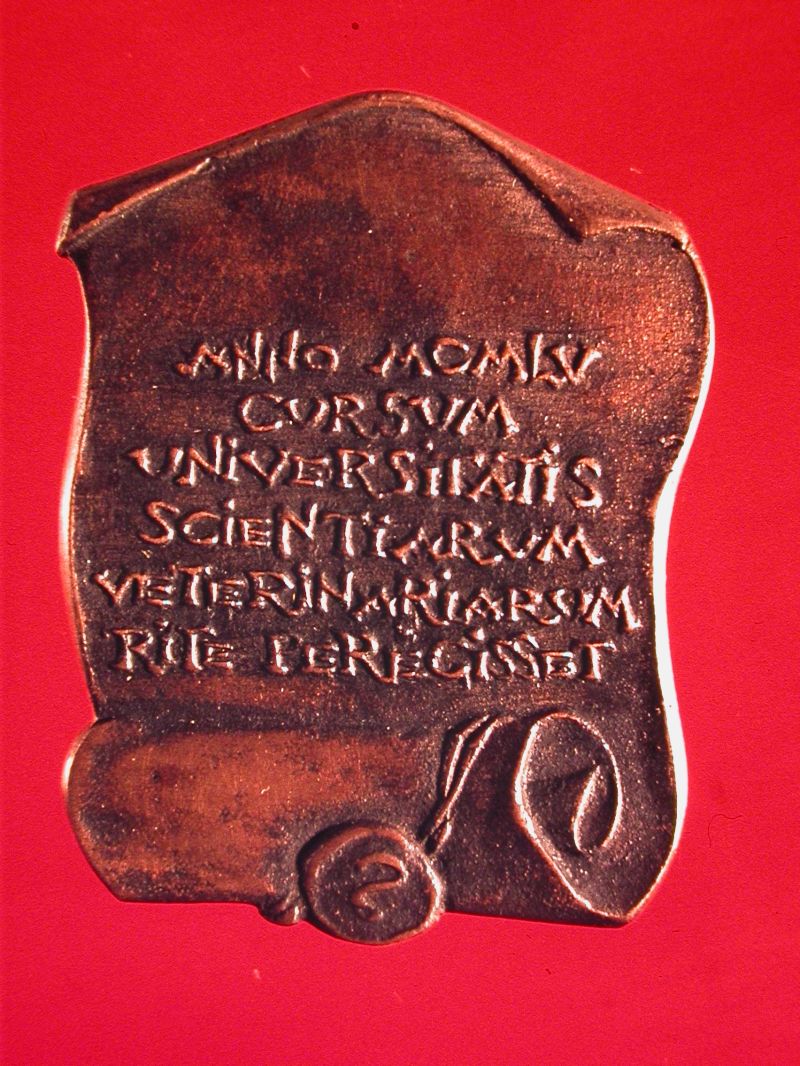 ANNO MCMLV
CURSUM
UNIVERSITATIS
SCIENTIARUM
VETERINARIARUM
RITE PEREGISSET